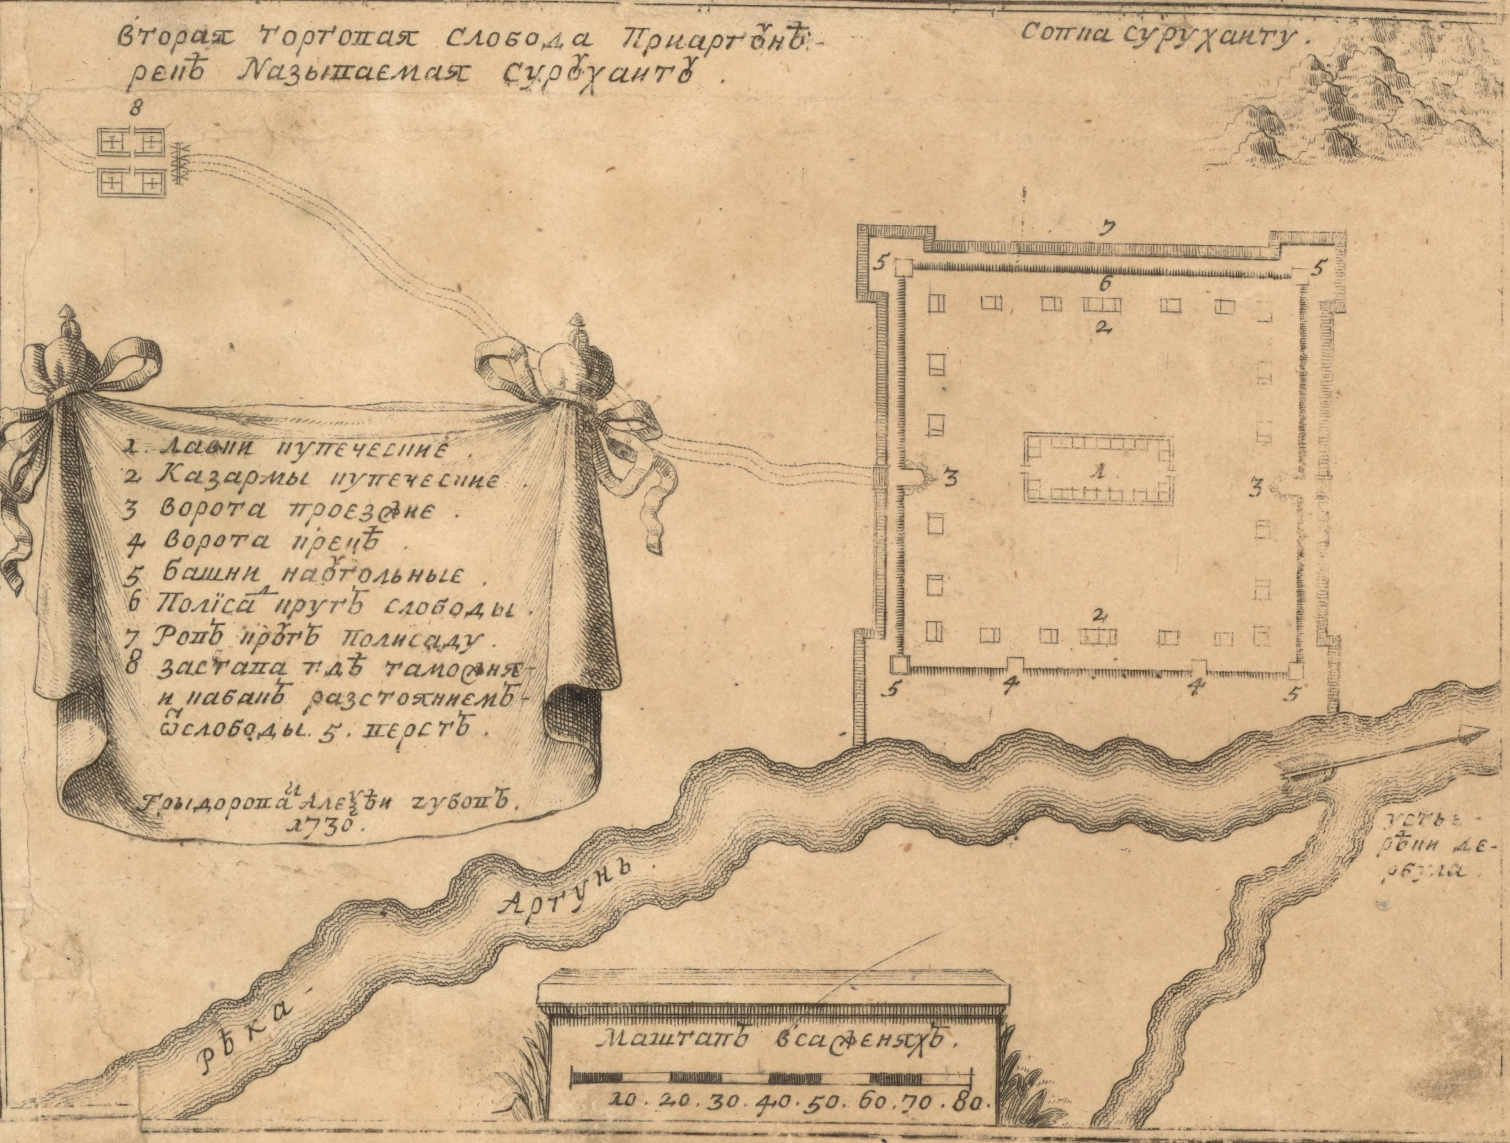 Вторая торговая слобода приаргȣнѣ-
рекѣ называемая Сурȣхаитȣ.
Сопка сурухаиту.
8
1. лавки купеческие.
2 Казармы купеческие.
3 ворота проезжие.
4 ворота крекѣ.
5 башни наȣгольные.
6 Полїсад кругъ слободы.
7 Ровъ крȣгъ полисаду.
8 застава гдѣ таможня-
и кабакъ разстояниемъ-
ѿслободы. 5. верстъ.
Грыдоровал Алеѯѣи Зубовъ.
1730.
7
5 5
6
2
3 1 3
2
5 4 4 5
устье-
рѣки де-
рбула.
рѣка Аргунь.
Маштапъ всаженяхъ.
10. 20. 30. 40. 50. 60. 70. 80.